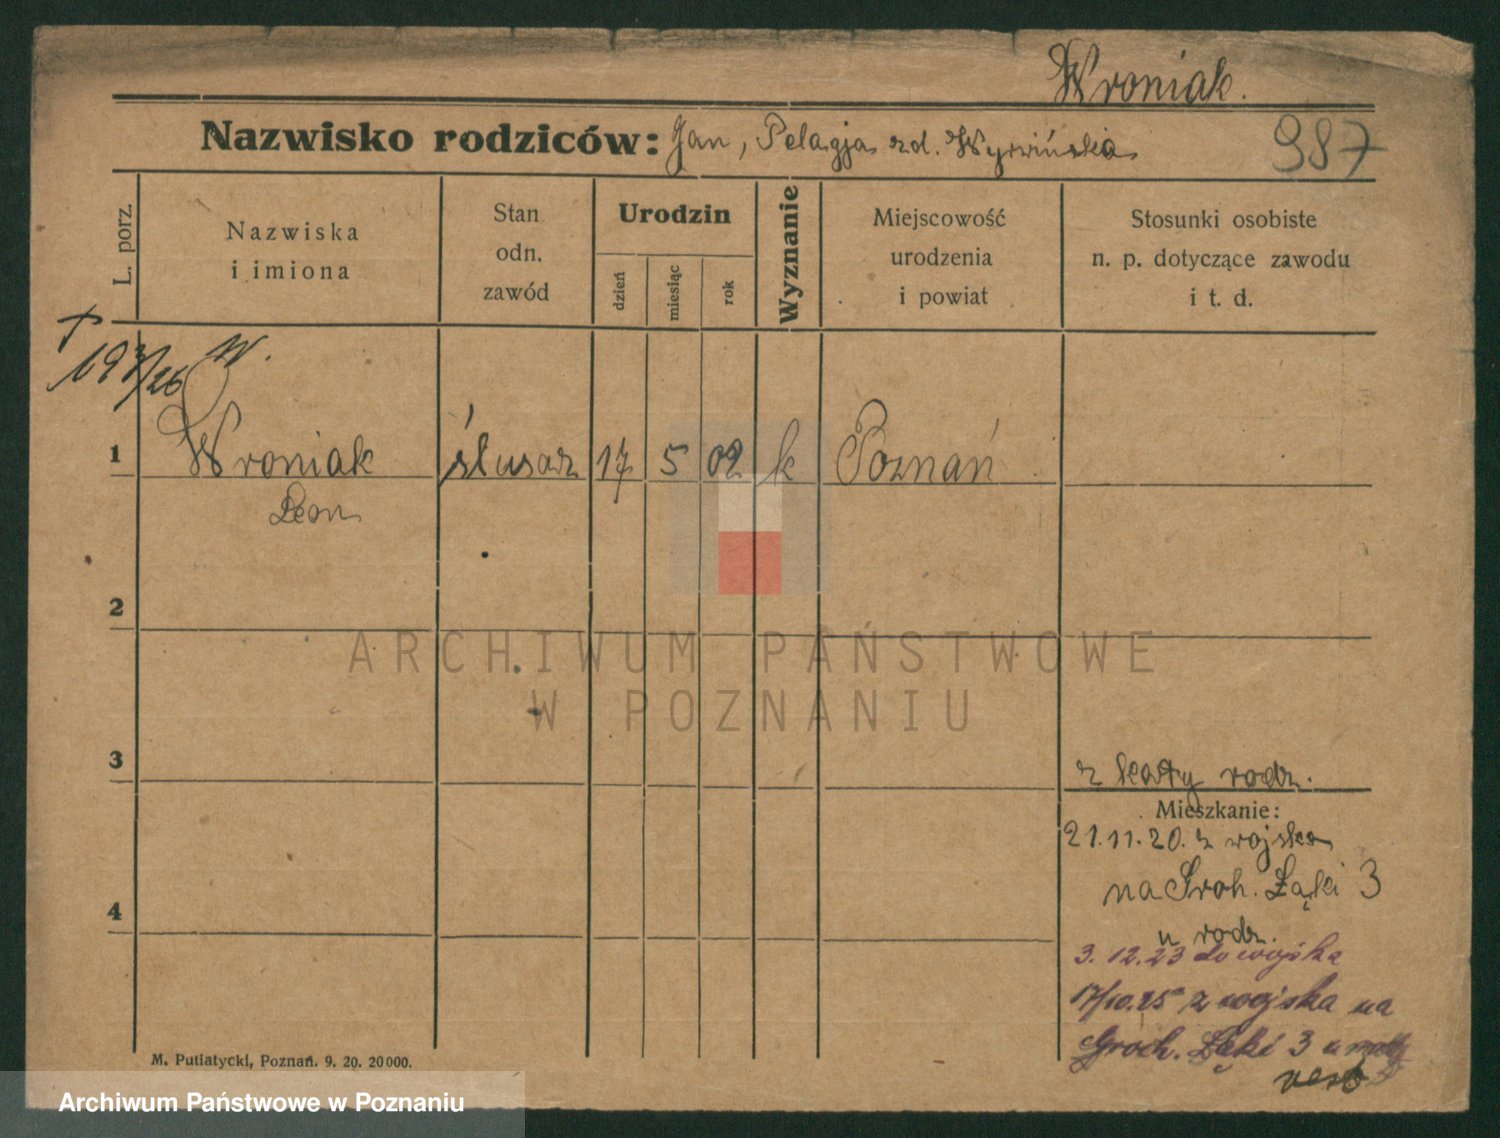 Wroniak.
Nazwisko rodziców: Jan, Pelagja zd.
987
L. porz.
Nazwiska
i imiona
Stan
odn.
zawód
Urodzin
dzień
miesiąc
rok
Wyznanie
Miejscowość
urodzenia
i powiat
Stosunki osobiste
n. p. dotyczące zawodu
i t. d.
W.
1 Wroniak ślusarz 17 5 02 k Poznań
Leon
2
ARCHIWUM PAŃSTWOWE
W POZNANIU
3
z karty rodz.
Mieszkanie:
21.11.20. z wojska
na Groh. Łąki 3
4
u rodz.
3.12.23 do wojska
17/10.25 z wojska na
Groch. Łąki 3 u
M. Putiatycki, Poznań. 9. 20. 20000.
Archiwum Państwowe w Poznaniu